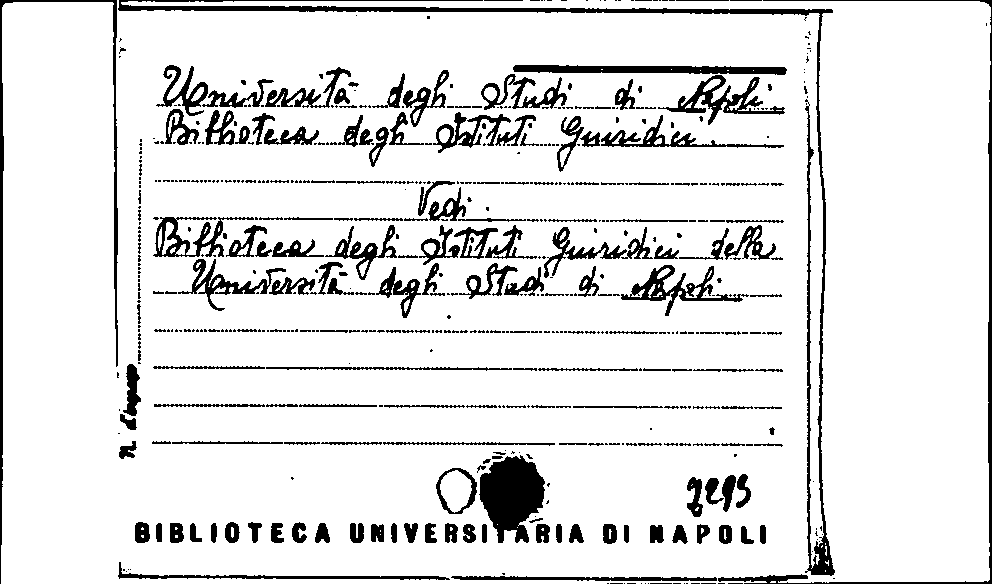 Università degli Studi di Napoli.
Biblioteca degli Istituti Guiridici.
Vedi:
Biblioteca degli Istituti Guiridici della
Università degli Studi di Napoli.
N. d'ingresso
BIBLIOTECA UNIVERSITARIA DI NAPOLI